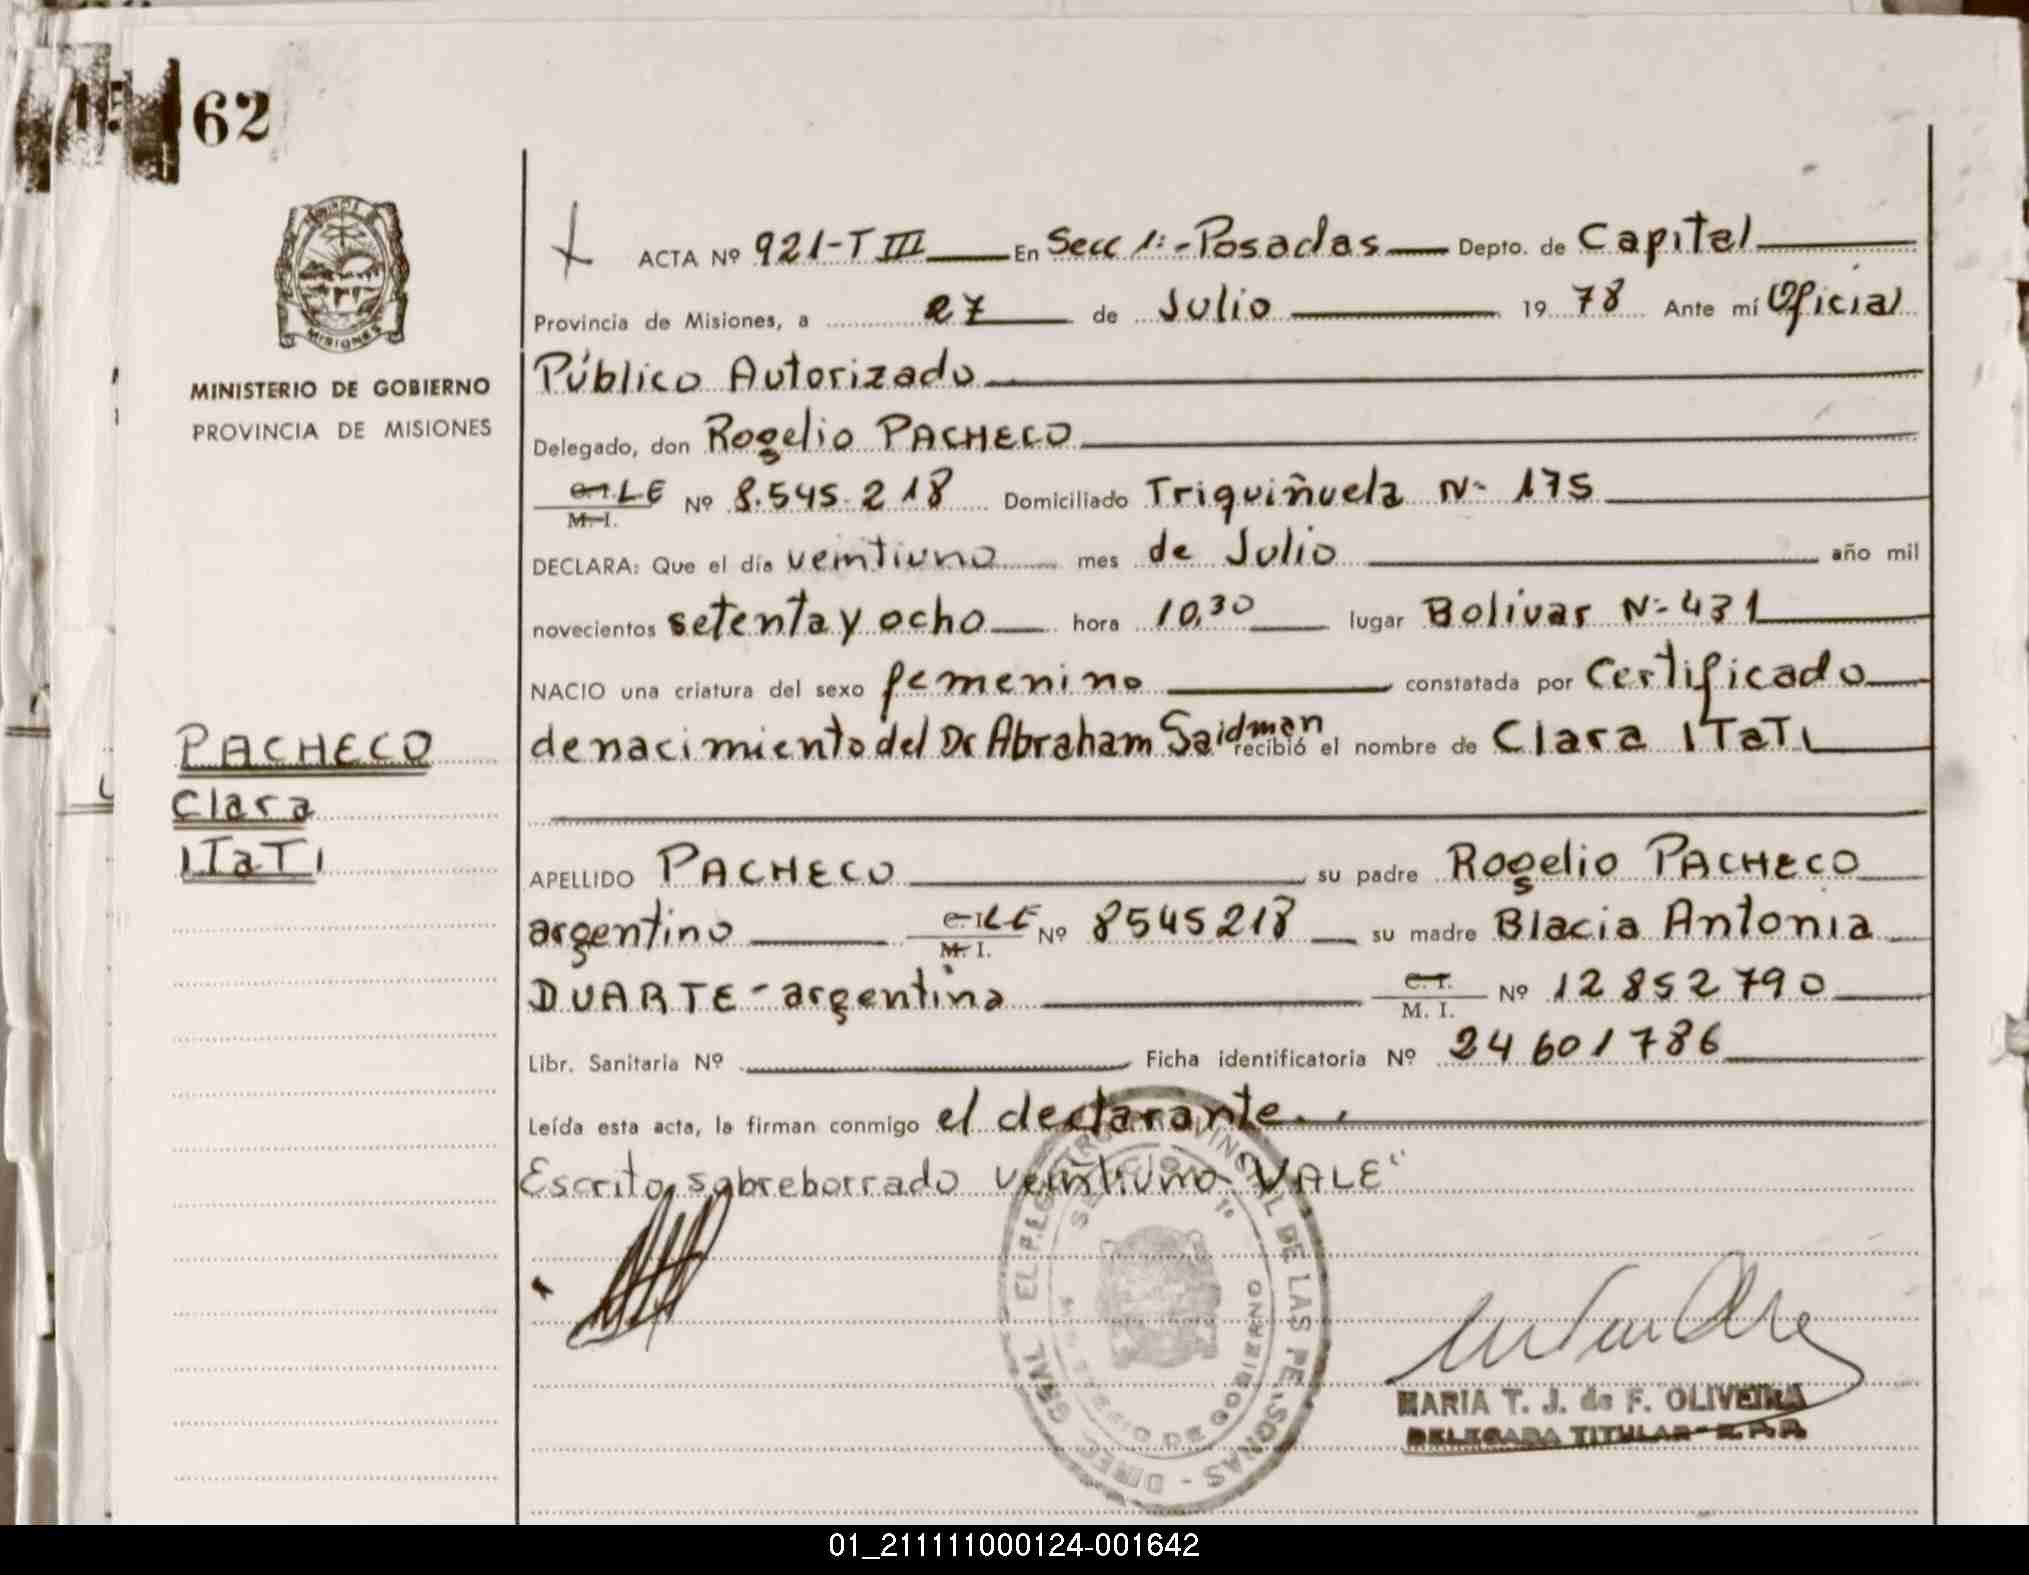 62
MISIONES
MINISTERIO DE GOBIERNO
PROVINCIA DE MISIONES
ACTA Nº 921-T III En Secc 1ª-Posadas Depto. de Capital
Provincia de Misiones, a 27 de Julio 1978 Ante mí Oficial
Público Autorizado
Delegado, don Rogelio PACHECO
C.I. LE M.I. Nº 8.545.218 Domiciliado Triquiñuela Nº 175
DECLARA: Que el día veintiuno mes de Julio año mil
novecientos setenta y ocho hora 10,30 lugar Bolivar Nº 431
NACIO una criatura del sexo femenino constatada por Certificado
de nacimiento del Dr Abraham Saidman recibió el nombre de Clara ITaTI
PACHECO
Clara
ITaTI
APELLIDO PACHECO su padre Rogelio PACHECO
argentino C.I. LE M.I. Nº 8545218 su madre Blacia Antonia
DUARTE - argentina C.I. M.I. Nº 12852790
Libr. Sanitaria Nº Ficha identificatoria Nº 24601786
Leída esta acta, la firman conmigo el declarante.
Escrito sobreborrado veintiuno "VALE"
PROVINCIAL DE LAS PERSONAS - DIREC. GRAL
SECCION 1º
MINISTERIO DE GOBIERNO
MARIA T. J. de F. OLIVEIRA
DELEGADA TITULAR - R.P.P.
01_211111000124-001642